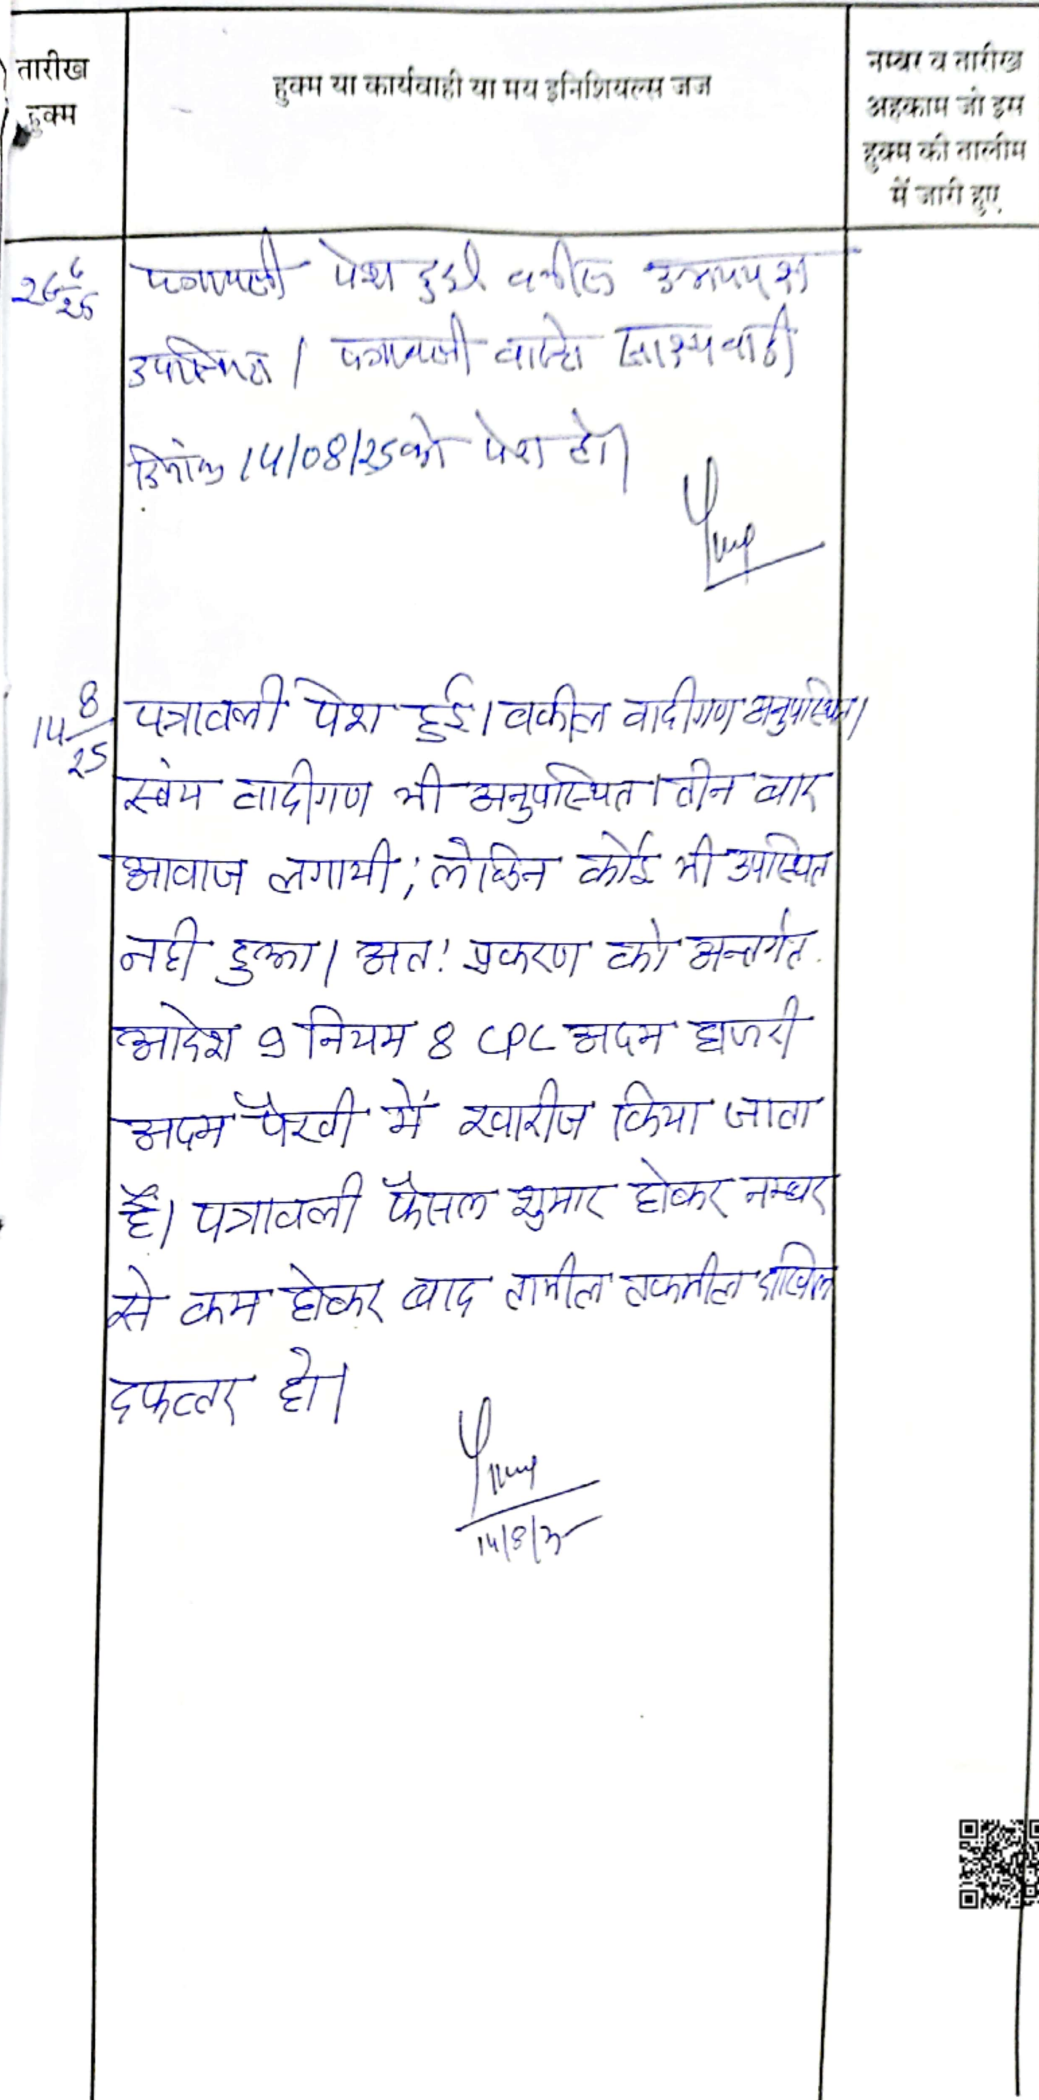 तारीख
हुक्म
हुक्म या कार्यवाही या मय इनिशियल्स जज
नम्बर व तारीख
अहकाम जो इस
हुक्म की तालीम
में जारी हुए
26/6/25
पत्रावली पेश हुई वकील उभयपक्ष
उपस्थित। पत्रावली वास्ते साक्ष्य वादी
दिनांक 14/08/25 को पेश हो।
14/8/25
पत्रावली पेश हुई। वकील वादीगण अनुपस्थित।
स्वंय वादीगण भी अनुपस्थित। तीन बार
आवाज लगायी, लेकिन कोई भी उपस्थित
नही हुआ। अत: प्रकरण को अन्तर्गत
आदेश 9 नियम 8 CPC अदम हाजरी
अदम पैरवी में खारीज किया जाता
है। पत्रावली फैसल शुमार होकर नम्बर
से कम होकर बाद तामील तकमील दाखिल
दफ्तर हो।
14/8/25